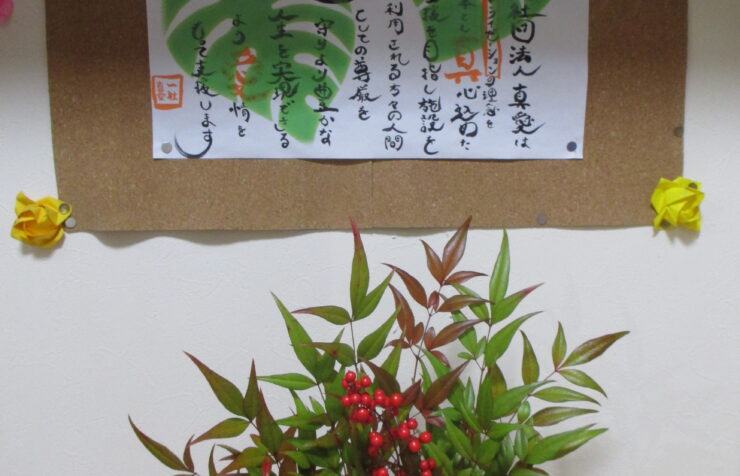 社団法人 真愛は
ーマライゼーションの理念を
本とし 真心込めた
援を目指し施設を
利用される方々の人間
としての尊厳を
守りより豊かな
人生を実現できる
よう 愛情を
もって支援します